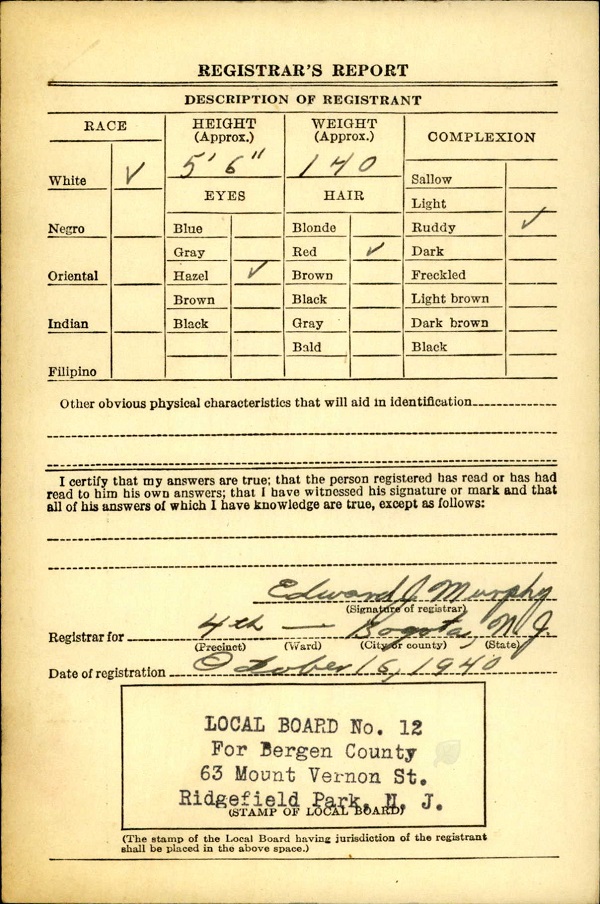 REGISTRAR'S REPORT
DESCRIPTION OF REGISTRANT
RACE
HEIGHT
(Approx.)
WEIGHT
(Approx.)
COMPLEXION
White ✓
5' 6"
140
Sallow
Light
EYES
HAIR
Negro
Blue
Blonde
Ruddy ✓
Gray
Red ✓
Dark
Oriental
Hazel ✓
Brown
Freckled
Brown
Black
Light brown
Indian
Black
Gray
Dark brown
Bald
Black
Filipino
Other obvious physical characteristics that will aid in identification
I certify that my answers are true; that the person registered has read or has had
read to him his own answers; that I have witnessed his signature or mark and that
all of his answers of which I have knowledge are true, except as follows:
Edward J. Murphy
(Signature of registrar)
Registrar for 4th — Bogota, N.J.
(Precinct) (Ward) (City or county) (State)
Date of registration October 16, 1940
LOCAL BOARD No. 12
For Bergen County
63 Mount Vernon St.
Ridgefield Park, N. J.
(STAMP OF LOCAL BOARD)
(The stamp of the Local Board having jurisdiction of the registrant
shall be placed in the above space.)